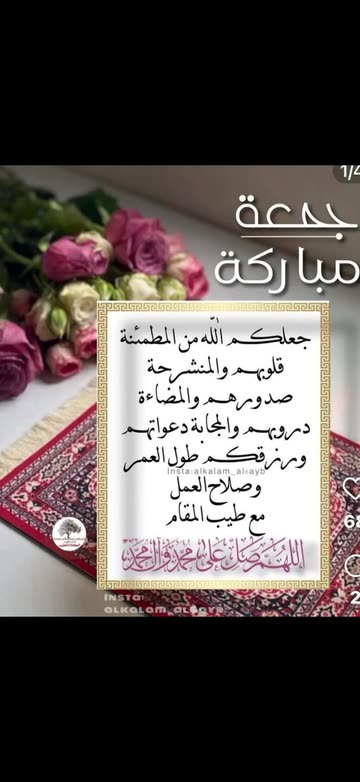 1/4
جمعة
مباركة
جعلكم الله من المطمئنة
قلوبهم والمنشرحة
صدورهم والمضاءة
دروبهم والمجابة دعواتهم
ورزقكم طول العمر
Insta:alkalam_altayb
وصلاح العمل
مع طيب المقام
اللهم صل على محمد وآل محمد
INSTA:
ALKALAM_ALTAYB